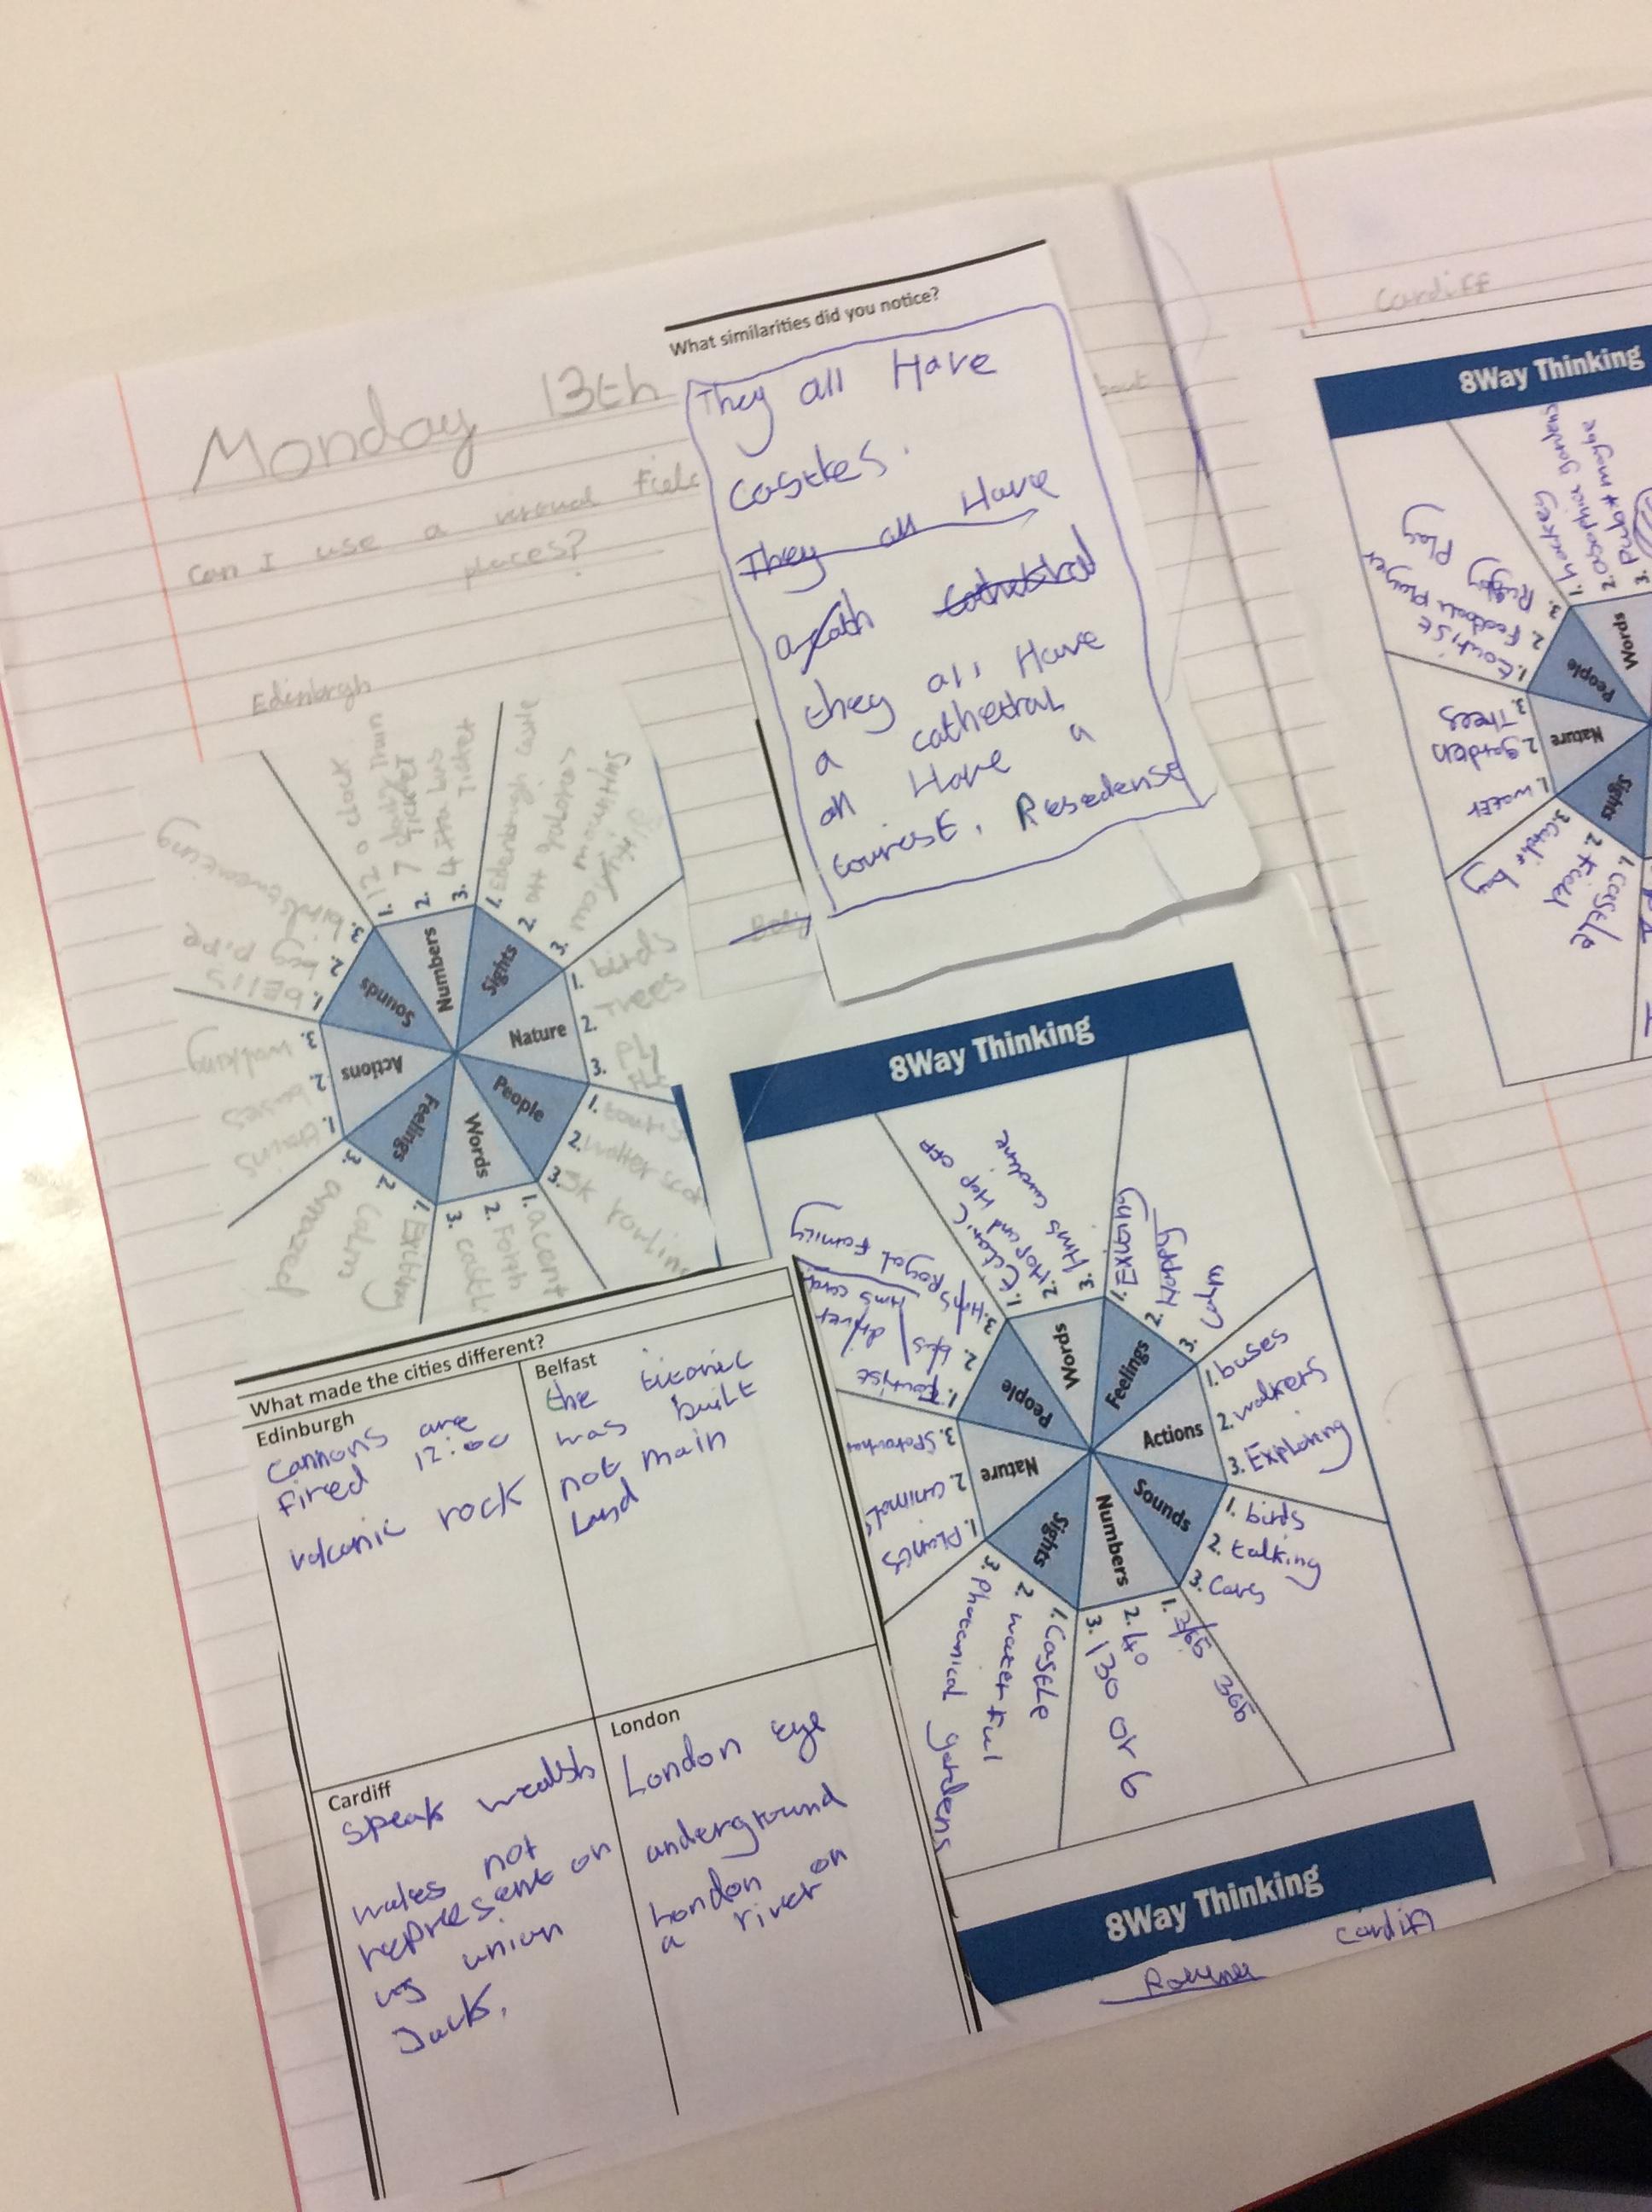 Monday 13th
can I use a visual field
places?
bout
Edinbrgh
What similarities did you notice?
They all Have
castles.
They all Have
a
cathedral
they all Have
a cathedral
all Have a
tourist. Resedense
Numbers
1. 12 o clock
2. 7
3. 4 star bus
Ticket
Sights
1. Edenbrugh castle
2. art galores
3. mountins
Nature
1. birds
2. Trees
3.
People
1. touris
2. walter scot
3. JK rowling
Words
1. acent
2. Forth
3. castl
Feelings
1. Exciting
2. Calm
3. amazed
Actions
1. trains
2. buses
3. walking
Sounds
1. bells
2. bag pipe
3. birds tweeting
What made the cities different?
Edinburgh
cannons are
fired 12:00
volcanic rock
Belfast
the titanic
was built
not main
Land
Cardiff
speak wealsh
wales not
represent on
union
Jack.
London
London eye
underground
London on
a river
8Way Thinking
Words
1.
2. Hop und Hop off
3. HMS caroline
Feelings
1.
2. Happy
3. calm
Actions
1. buses
2. walkers
3. Exploring
Sounds
1. birds
2. talking
3. Cars
Numbers
1. 365
2. 40
3. 130 or 6
Sights
1. Castle
2. waterful
3. Photanical gardens
Nature
1. Plants
2. animals
3.
People
1. tourist
2. bus driver
3. Royal Family
8Way Thinking
cardiff
Cardiff
8Way Thinking
Words
1. hockey
2.
3.
People
1. tourist
2. Football Player
3. Rugby
Play
Nature
1. water
2. garden
3. Trees
Sights
1. castle
2. Field
3. bay